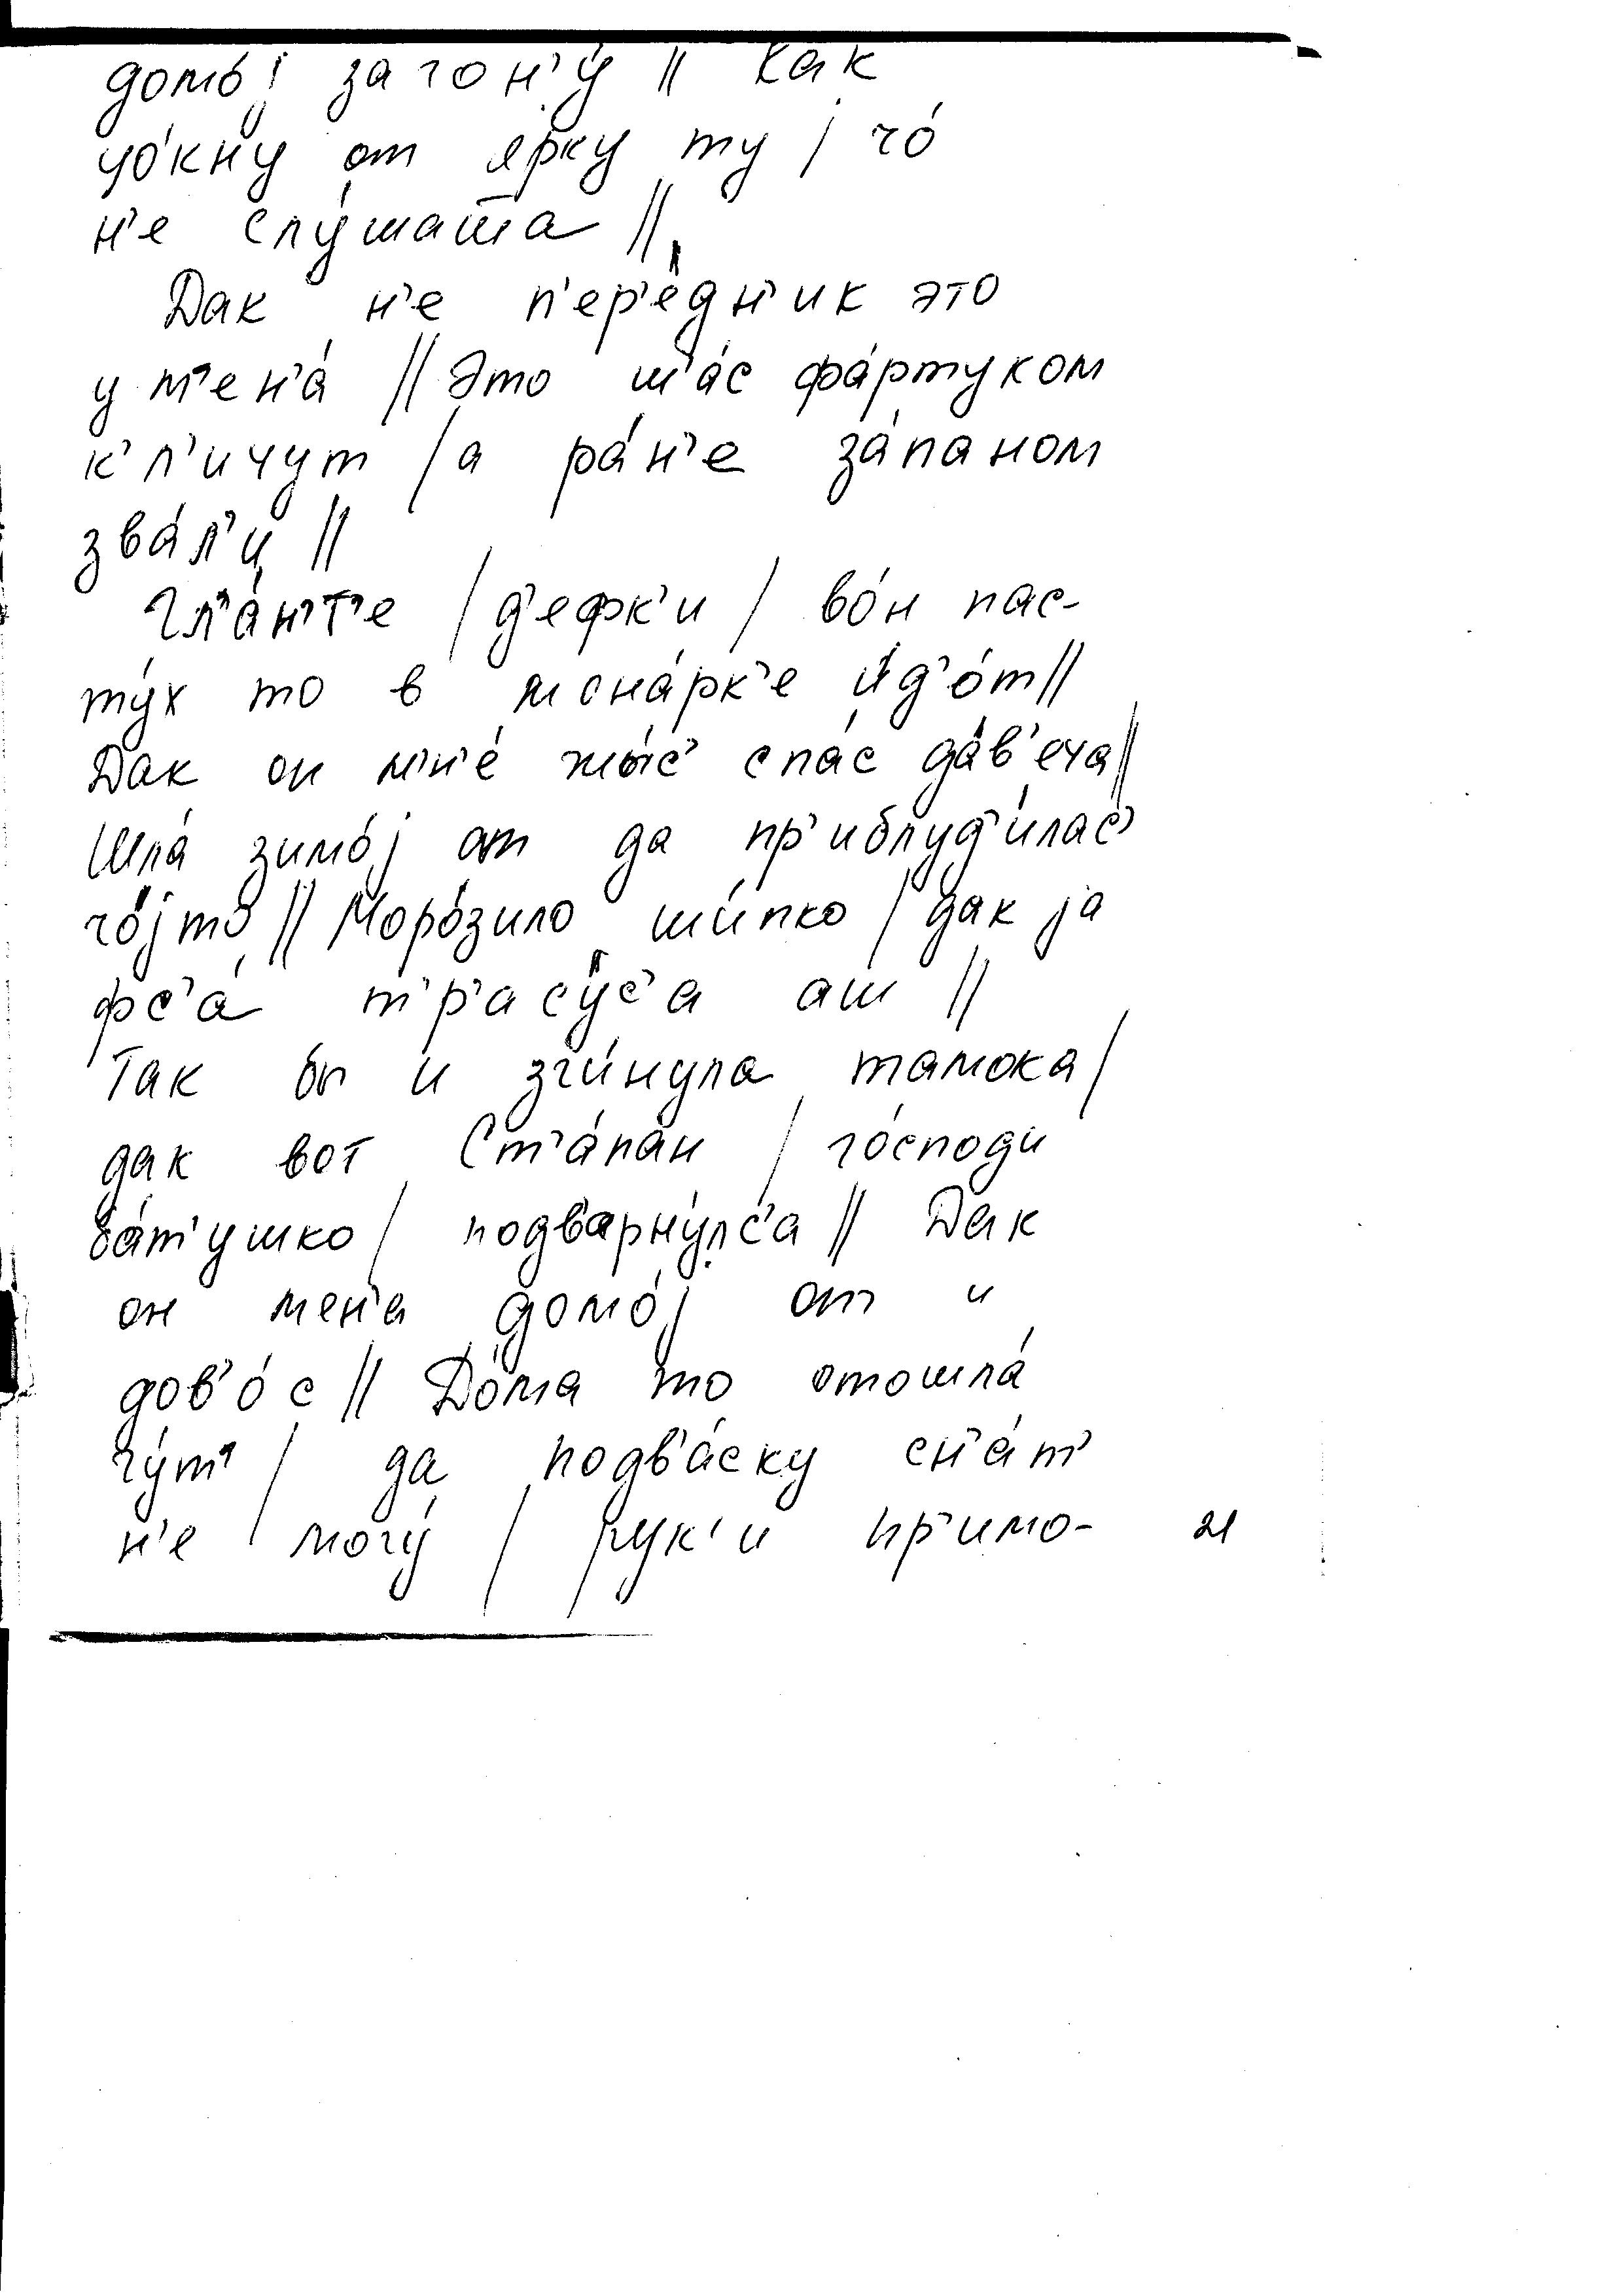 домо́j загон'у́ || Как
цо́кну от я́рку ту / чо́
н'е слу́шат̅а ||
Дак н'е п'ер'е́дн'ик это
у м'ен'а́ || Это ш'а́с фа́ртуком
к'л'ичут / а ра́н'е за́паном
зва́л'и ||
Гл'а́н'т'е / д'ефк'и / во́н пас-
ту́х то в монарк'е ид'о́т ||
Дак он м'н'е́ жы́с' спа́с да́в'еча ||
Шла́ зимо́j от да пр'иблуд'и́лас'
чо́jто || Моро́зило ши́пко / дак jа
фс'а́ т'р'асу́с'а аш ||
Так бы и зги́нула тамока /
дак вот Ст'а́пан / го́споди
ба́т'ушко / подв'арну́лс'а || Дак
он мен'а домо́j от и
дов'о́с || До́ма то отошла́
чу́т' / да подв'а́ску сн'а́т'
н'е могу́ / рук'и пр'имо- 21